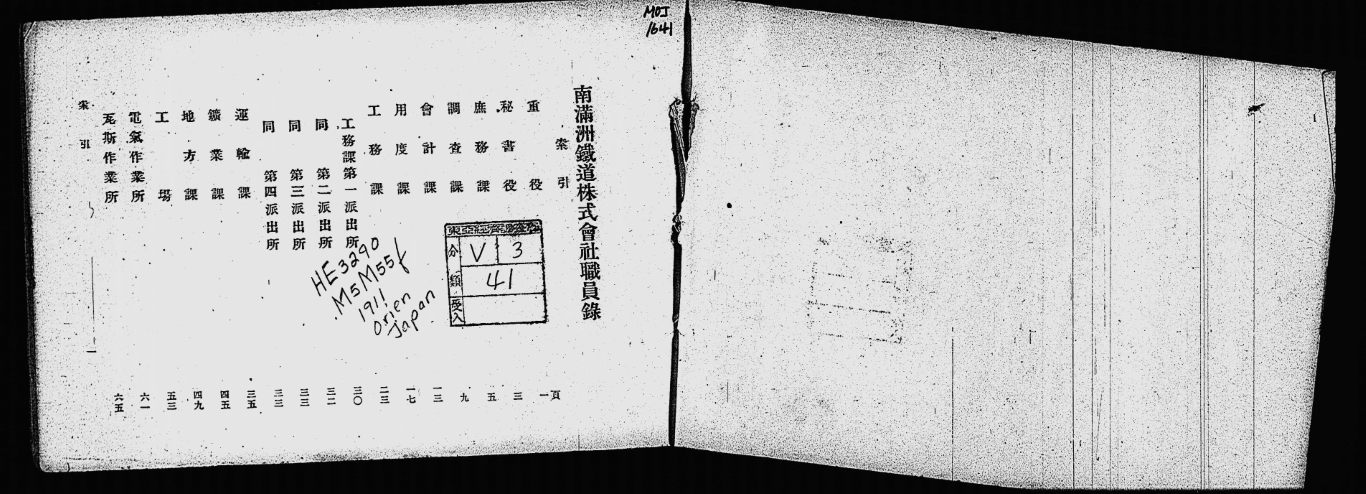 MOJ
1641
南滿洲鐵道株式會社職員錄
索引
重役 一頁
秘書役 三
庶務課 五
調査課 九
會計課 一三
用度課 一七
工務課 二三
工務課第一派出所 三〇
同 第二派出所 三二
同 第三派出所 三三
同 第四派出所 三三
運輸課 三五
鑛業課 四五
地方課 四九
工場 五三
電氣作業所 六一
瓦斯作業所 六五
索引 一
分類 V 3
41
受入
HE3290
M5M55f
1911
Orien
Japan